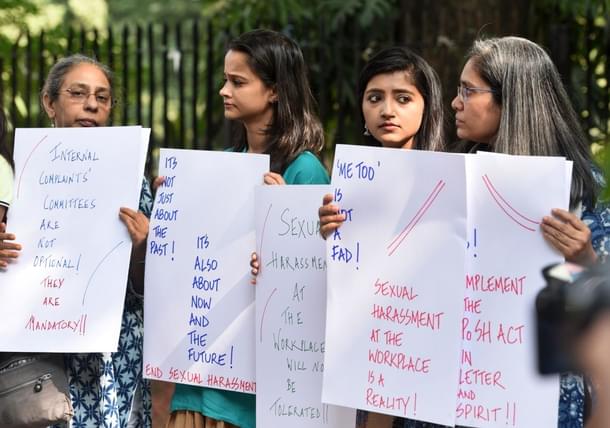 INTERNAL
COMPLAINTS'
COMMITTEES
ARE
NOT
OPTIONAL!
THEY
ARE
MANDATORY!!
IT'S
NOT
JUST
ABOUT
THE
PAST!
IT'S
ALSO
ABOUT
NOW
AND
THE
FUTURE!
END SEXUAL HARASSMENT
SEXUAL
HARASSMEN
AT
THE
WORKPLACE
WILL NO
BE
TOLERATED!
'ME TOO'
IS
A
FAD!
SEXUAL
HARASSMENT
AT THE
WORKPLACE
IS A
REALITY!
!
MPLEMENT
THE
POSH ACT
IN
LETTER
AND
SPIRIT!!